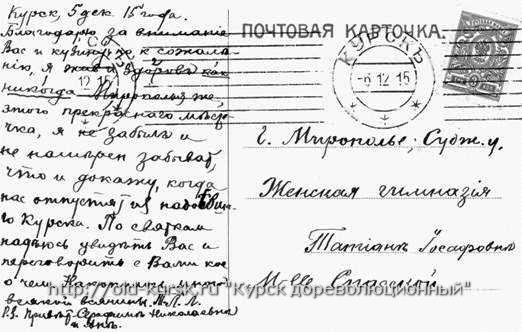 Курск, 5 дек. 15 года.
Благодарю за внимание
Вас и кузину, но, к сожале-
нію, я жив и здоров как
никогда. Мирополья же,
этого прекраснаго мѣсте-
чка, я не забыл и
не намѣрен забывать,
что и докажу, когда
нас отпустят из
го Курска. По святкам
надѣюсь увидѣть Вас и
переговорить с Вами кое
о чем.
всякой всячины. М. П. Л.
P.S. Привѣт Серафимѣ Николаевнѣ
и
ПОЧТОВАЯ КАРТОЧКА.
КУРСКЪ
6 12 15
12 15
г. Мирополье, Судж. у.
Женская гимназія
Татіанѣ Іосафовнѣ
М-lle Спасской
http://old-kursk.ru "Курск дореволюционный"